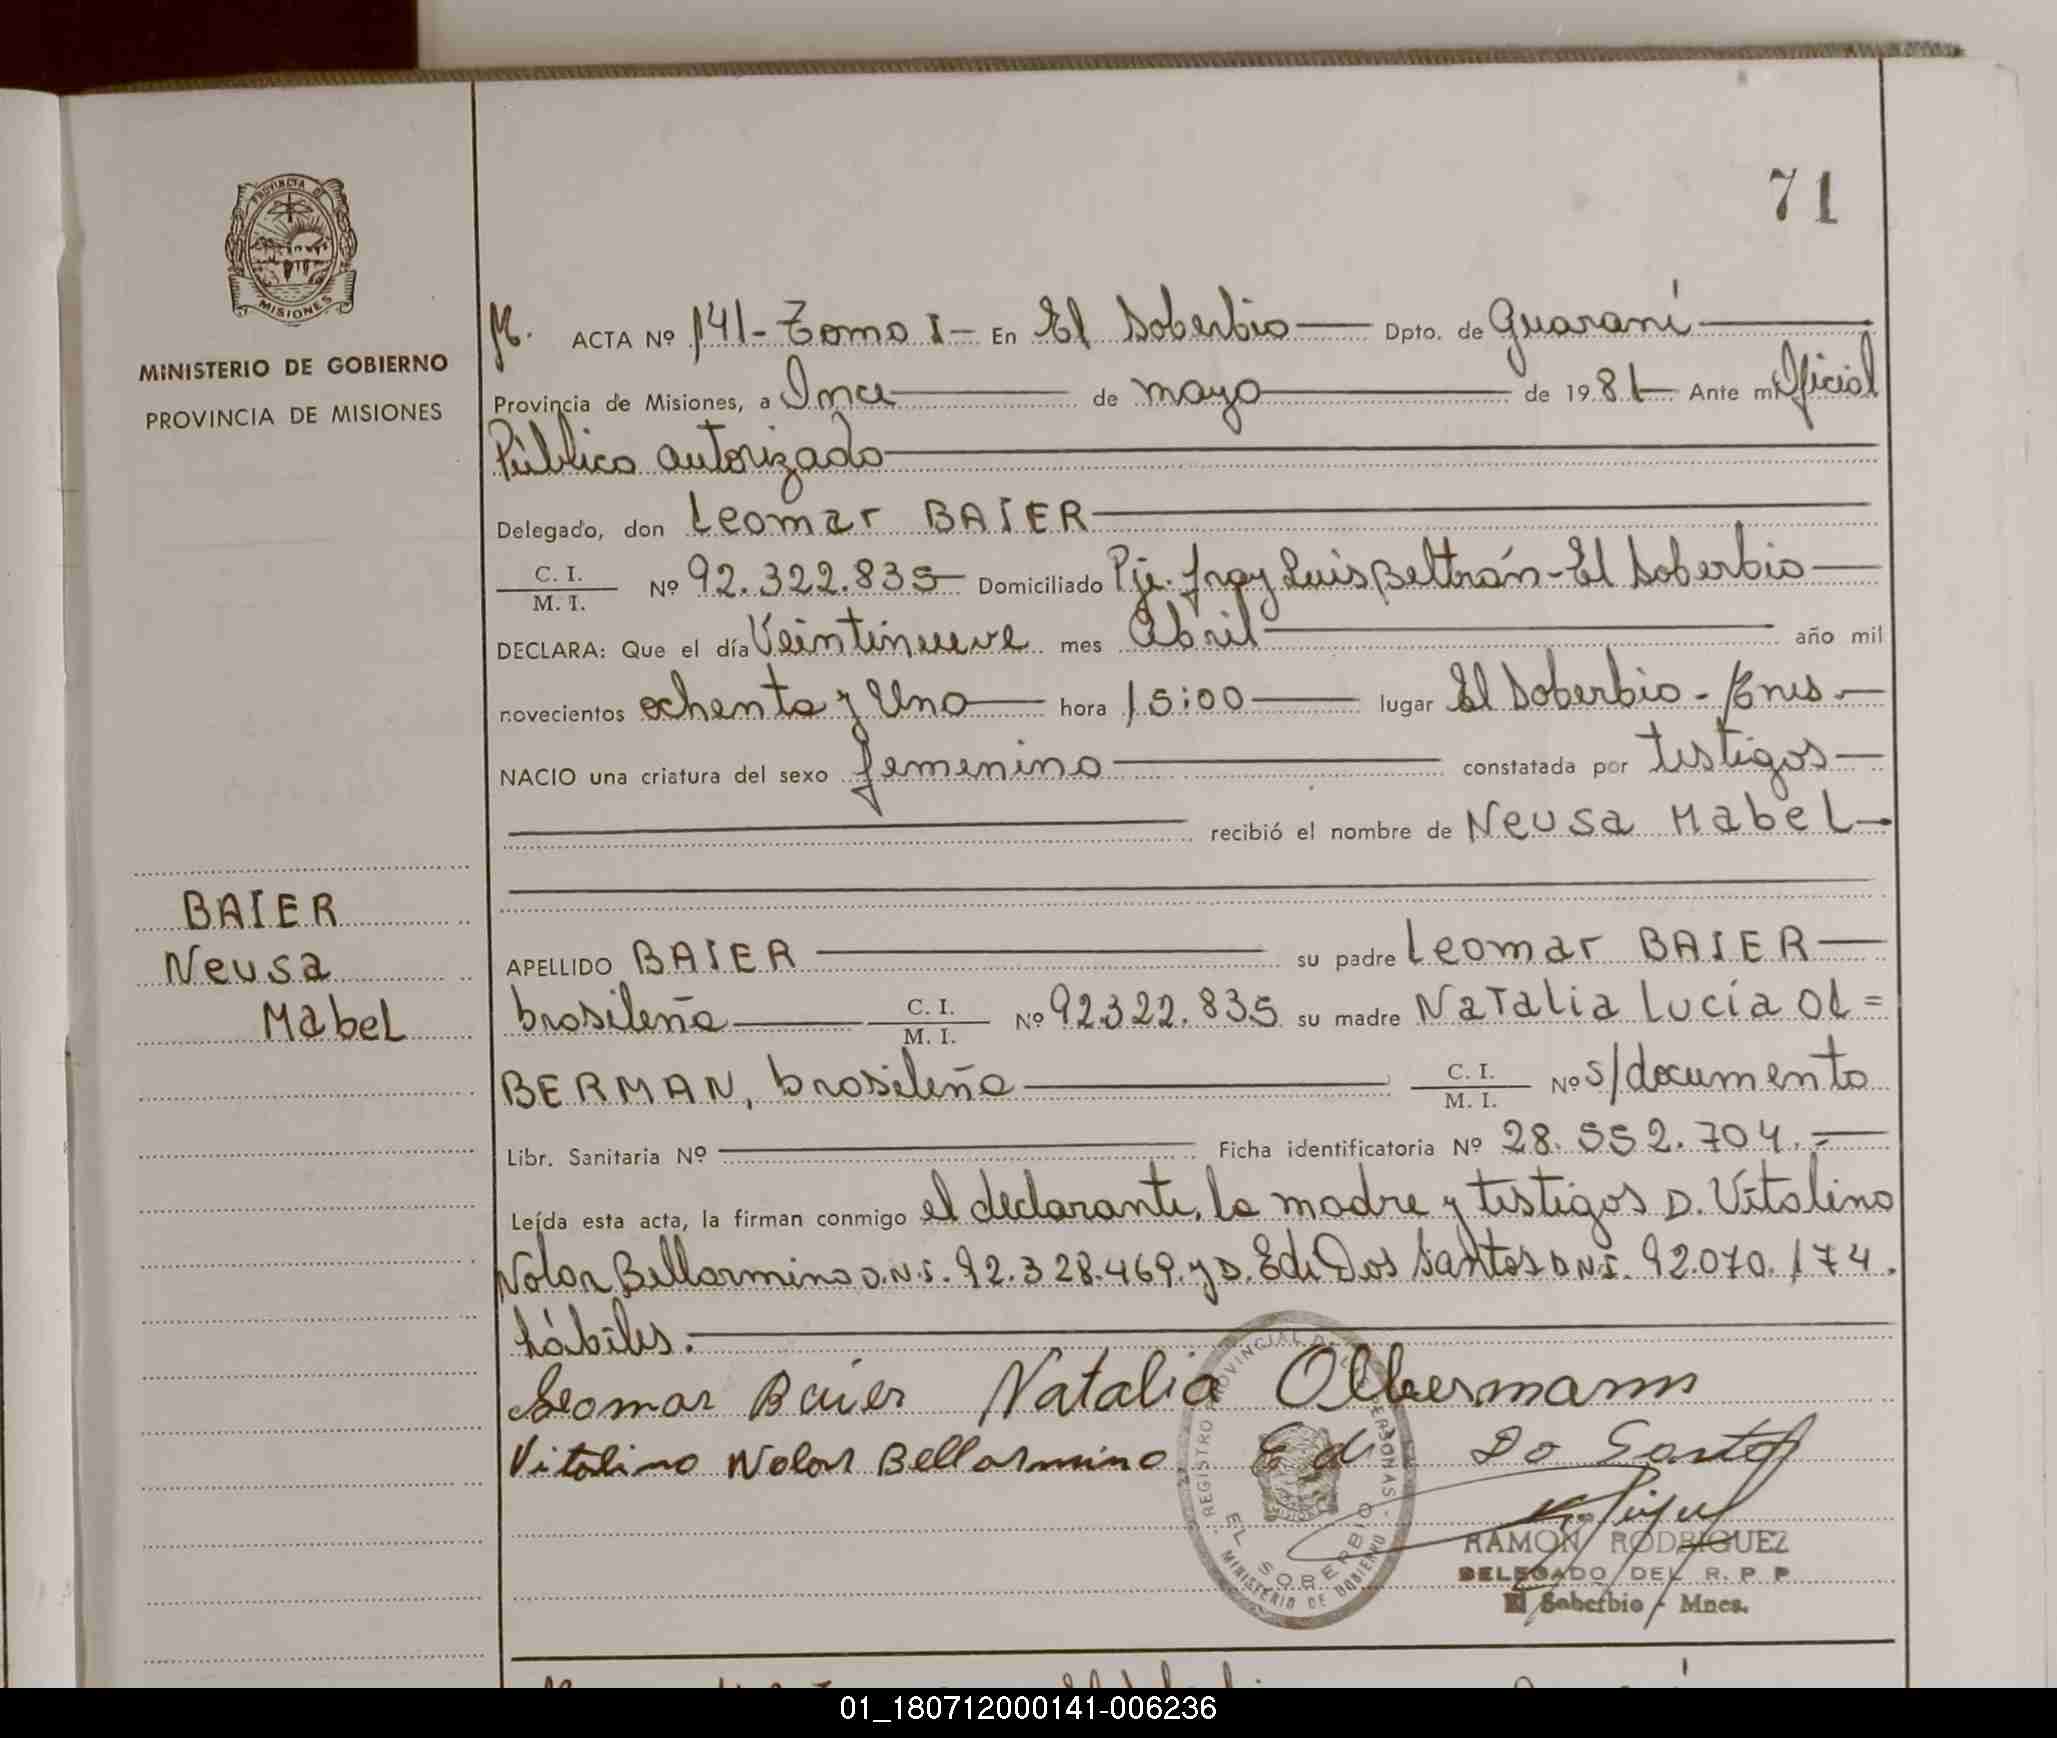 71
PROVINCIA DE
MISIONES
MINISTERIO DE GOBIERNO
PROVINCIA DE MISIONES
BAIER
Neusa
Mabel
M. ACTA Nº 141- Tomo I- En El Soberbio Dpto. de Guaraní
Provincia de Misiones, a Once de mayo de 1981 Ante mi Oficial
Público autorizado
Delegado, don Leomar BAIER
C. I.
M. I. Nº 92.322.835 Domiciliado Pje. fray Luis Beltrán-El Soberbio
DECLARA: Que el día Veintinueve mes Abril año mil
novecientos ochenta y Uno hora 15:00 lugar El Soberbio - Mnes
NACIO una criatura del sexo femenino constatada por testigos
recibió el nombre de Neusa Mabel
APELLIDO BAIER su padre Leomar BAIER
brasileña C. I.
M. I. Nº 92.322.835 su madre Natalia Lucía OL=
BERMAN, brasileña C. I.
M. I. Nº s/documento
Libr. Sanitaria Nº Ficha identificatoria Nº 28.552.704.=
Leída esta acta, la firman conmigo el declarante, la madre y testigos D. Vitalino
Nolar Bellarmino D.N.I. 92.328.469. y D. Edi Dos Santos D.N.I. 92.070.174.
hábiles.
Leomar Baier Natalia Olbermann
Vitalino Nolar Bellarmino Edi Do Santos
REGISTRO PROVINCIAL DE LAS PERSONAS
EL SOBERBIO
MINISTERIO DE GOBIERNO
RAMON RODRIGUEZ
DELEGADO DEL R. P. P
El Soberbio - Mnes.
01_180712000141-006236